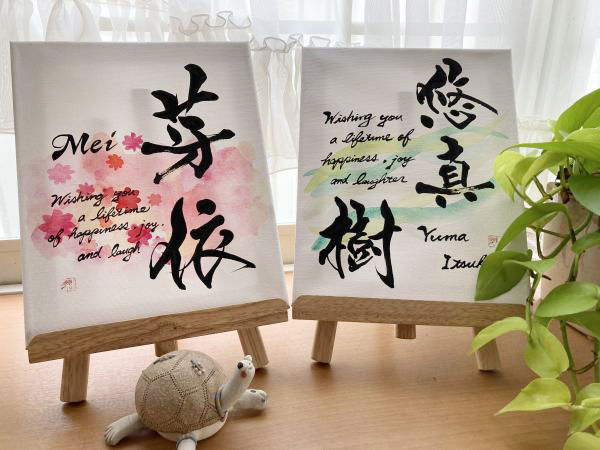 Mei
芽
依
Wishing you
a lifetime
of happiness, joy,
and laugh
悠
真
樹
Wishing you
a lifetime of
happiness, joy
and laughter
Yuma